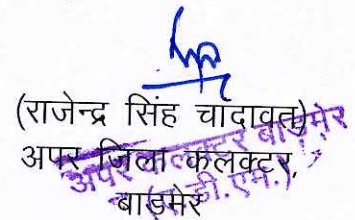 (राजेन्द्र सिंह चांदावत)
अपर जिला कलक्टर,
बाड़मेर
अपर कलक्टर बाड़मेर